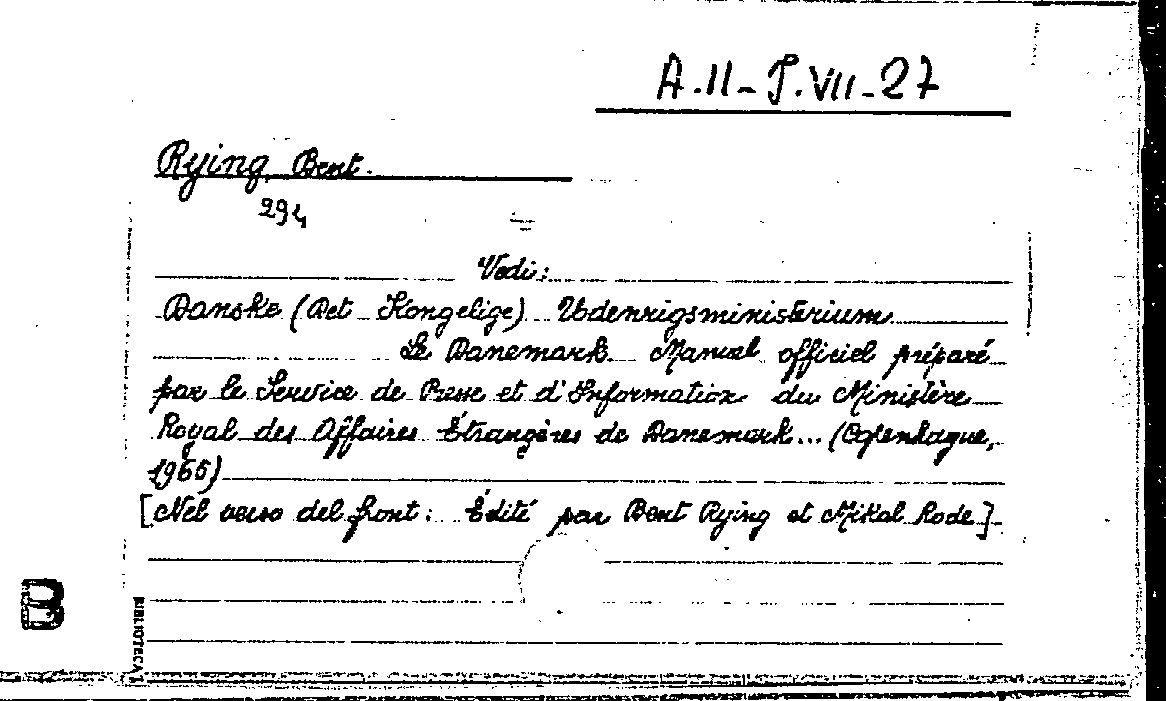 A.II-T.VII-27
Rying, Bent.
294
Vedi:
Danske (Det Kongelige) Udenrigsministerium
Le Danemark Manuel officiel préparé
par le Service de Presse et d'Information du Ministère
Royal des Affaires Étrangères de Danemark... (Copenhague,
1965)
[Nel verso del front: Édité par Bent Rying et Mikal Rode]
B
BIBLIOTECA